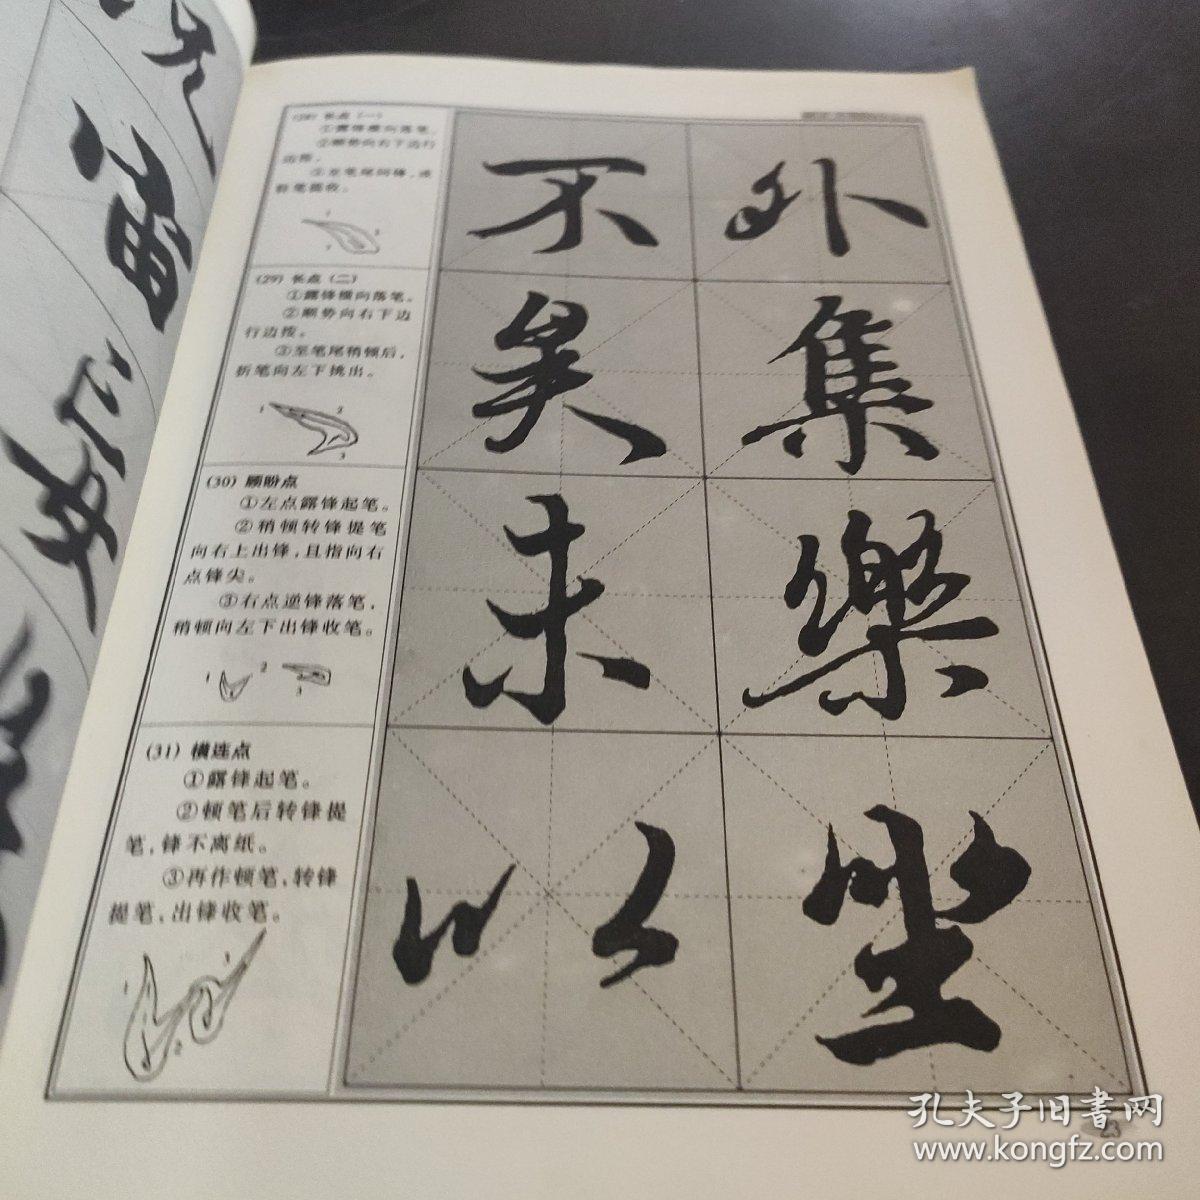 (28) 长点 (一)
①露锋横向落笔。
②顺势向右下边行
边按。
③至笔尾回锋，或
折笔提收。
1
2
3
(29) 长点 (二)
①露锋横向落笔。
②顺势向右下边
行边按。
③至笔尾稍顿后，
折笔向左下挑出。
1
2
3
(30) 顾盼点
①左点露锋起笔。
②稍顿转锋提笔
向右上出锋，且指向右
点锋尖。
③右点逆锋落笔，
稍顿向左下出锋收笔。
1
2
3
(31) 横连点
①露锋起笔。
②顿笔后转锋提
笔，锋不离纸。
③再作顿笔，转锋
提笔，出锋收笔。
不 外
矣 集
未 樂
以 坐
23
孔夫子旧書网
www.kongfz.com